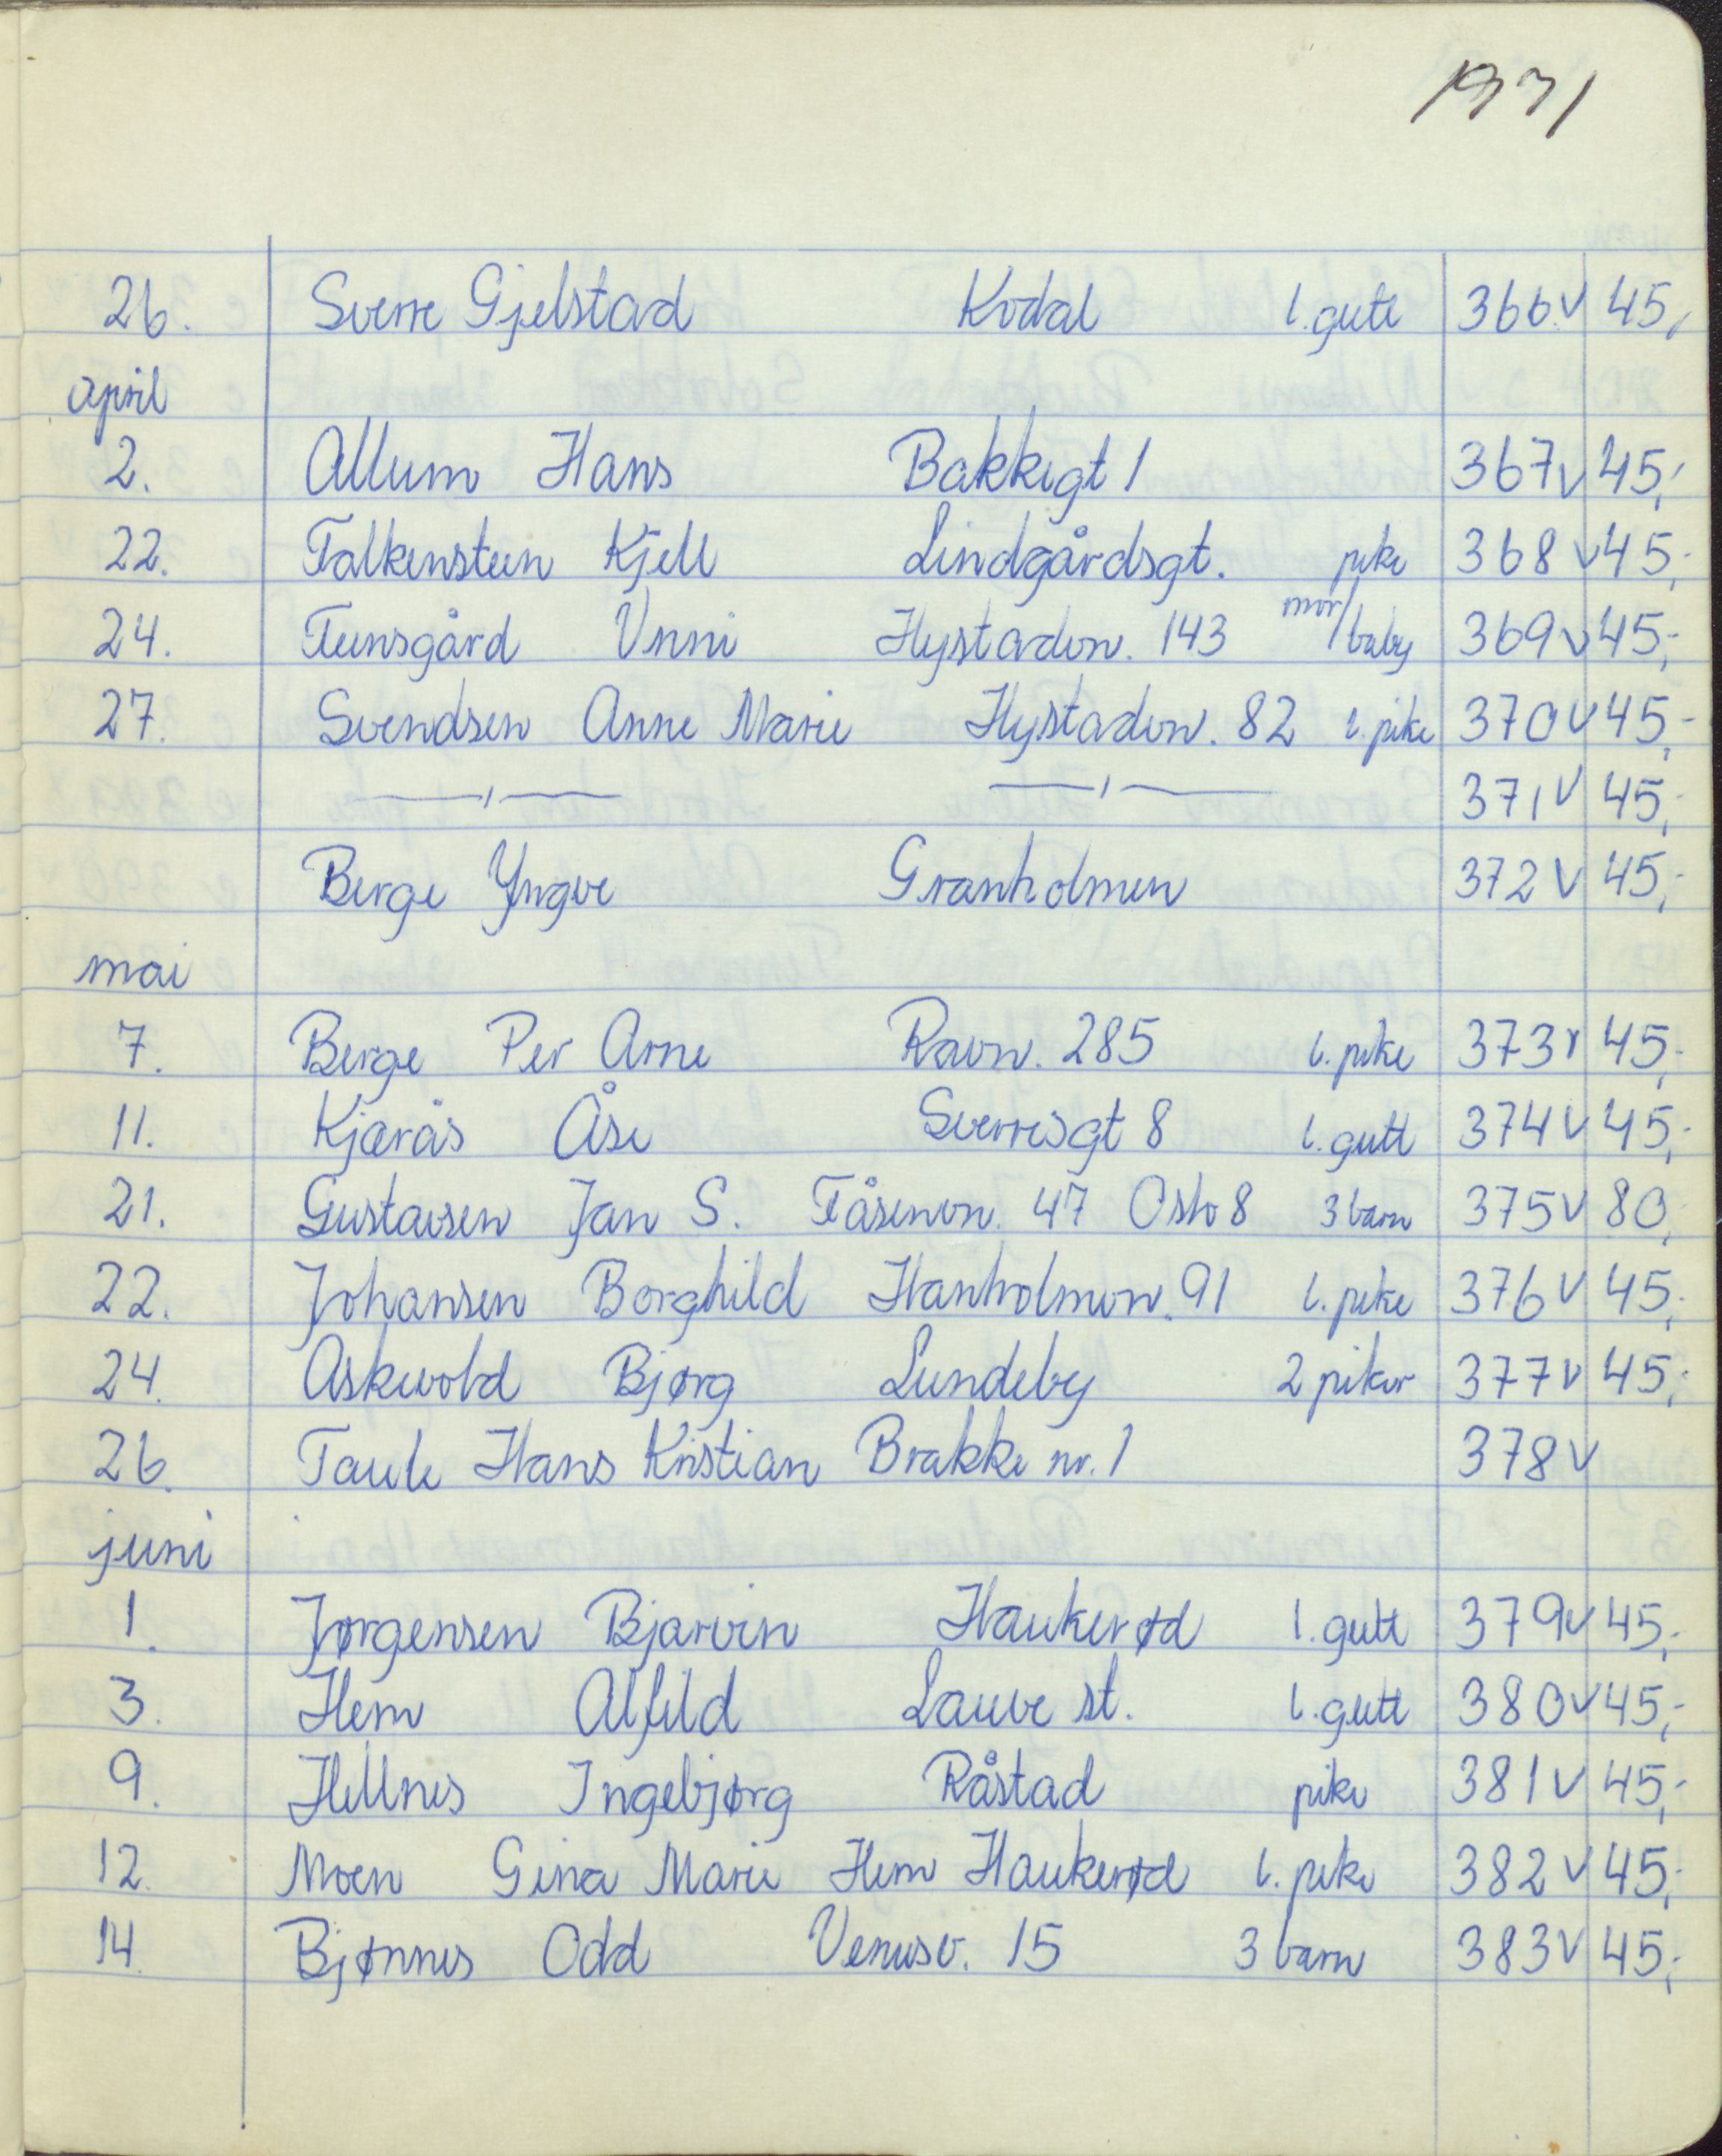 1971
26. Sverre Gjelstad Kodal l. gutt 366 v 45,
april
2. Allum Hans Bakkegt 1 367 v 45,-
22. Falkensteen Kjell Lindgårdsgt. pike 368 v 45,-
24. Teensgård Unni Hystadvn. 143 mor/baby 369 v 45,-
27. Svendsen Anne Marie Hystadvn. 82 l. pike 370 v 45,-
—〃— —〃— 371 v 45,-
Berge Yngve Granholmen 372 v 45,-
mai
7. Berge Per Arne Ravn. 285 l. pike 373 v 45,-
11. Kjærås Åse Sverresgt 8 l. gutt 374 v 45,-
21. Gustavsen Jan S. Tåsenvn. 47 Oslo 8 3 barn 375 v 80,-
22. Johansen Borghild Framnesvn. 91 l. pike 376 v 45,-
24. Askevold Bjørg Lundeby 2 piker 377 v 45,-
26. Taule Hans Kristian Brakke nr. 1 378 v
juni
1. Jørgensen Bjarvin Haukerød l. gutt 379 v 45,-
3. Hem Alfild Lauve st. l. gutt 380 v 45,-
9. Hellnes Ingebjørg Råstad pike 381 v 45,-
12. Moen Gina Marie Hem Haukerød l. pike 382 v 45,-
14. Bjønnes Odd Venusv. 15 3 barn 383 v 45,-